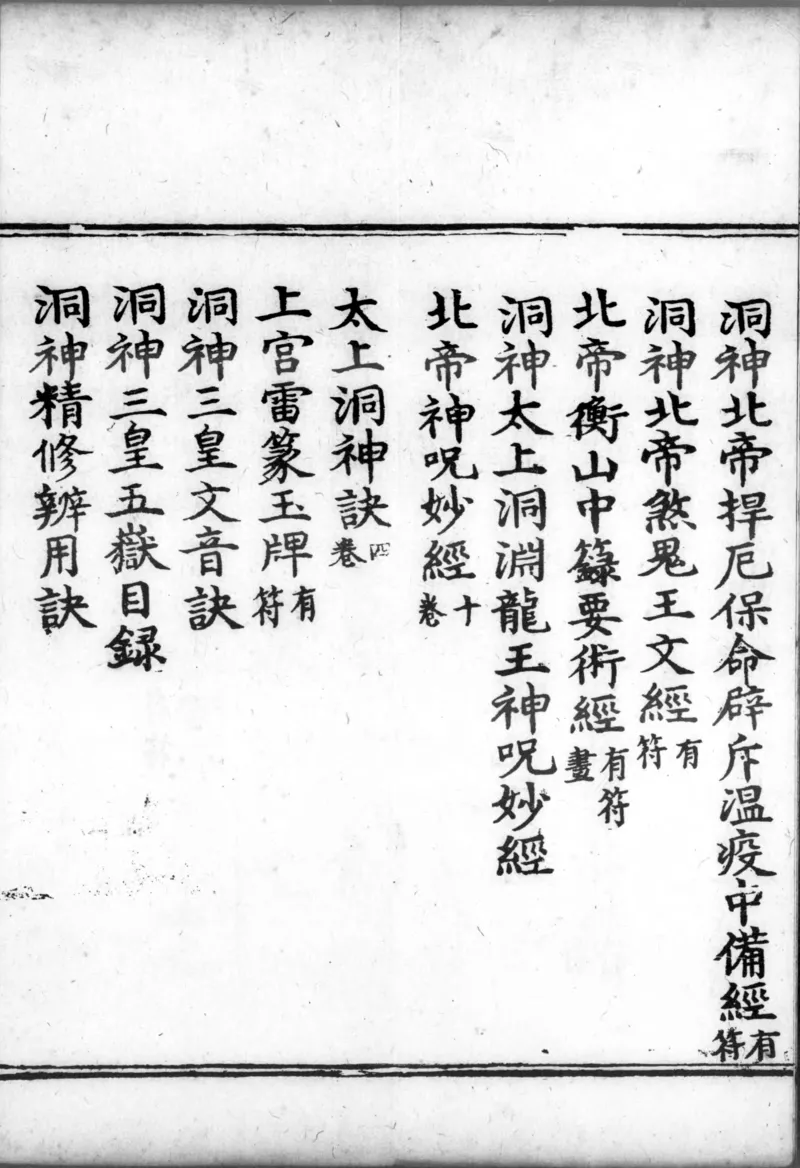 洞神北帝捍厄保命辟斥温疫中備經有符
洞神北帝煞鬼王文經有符
北帝衡山中籙要術經有符畫
洞神太上洞淵龍王神呪妙經
北帝神呪妙經十卷
太上洞神訣四卷
上宫雷篆玉牌有符
洞神三皇文音訣
洞神三皇五嶽目録
洞神精修辨用訣